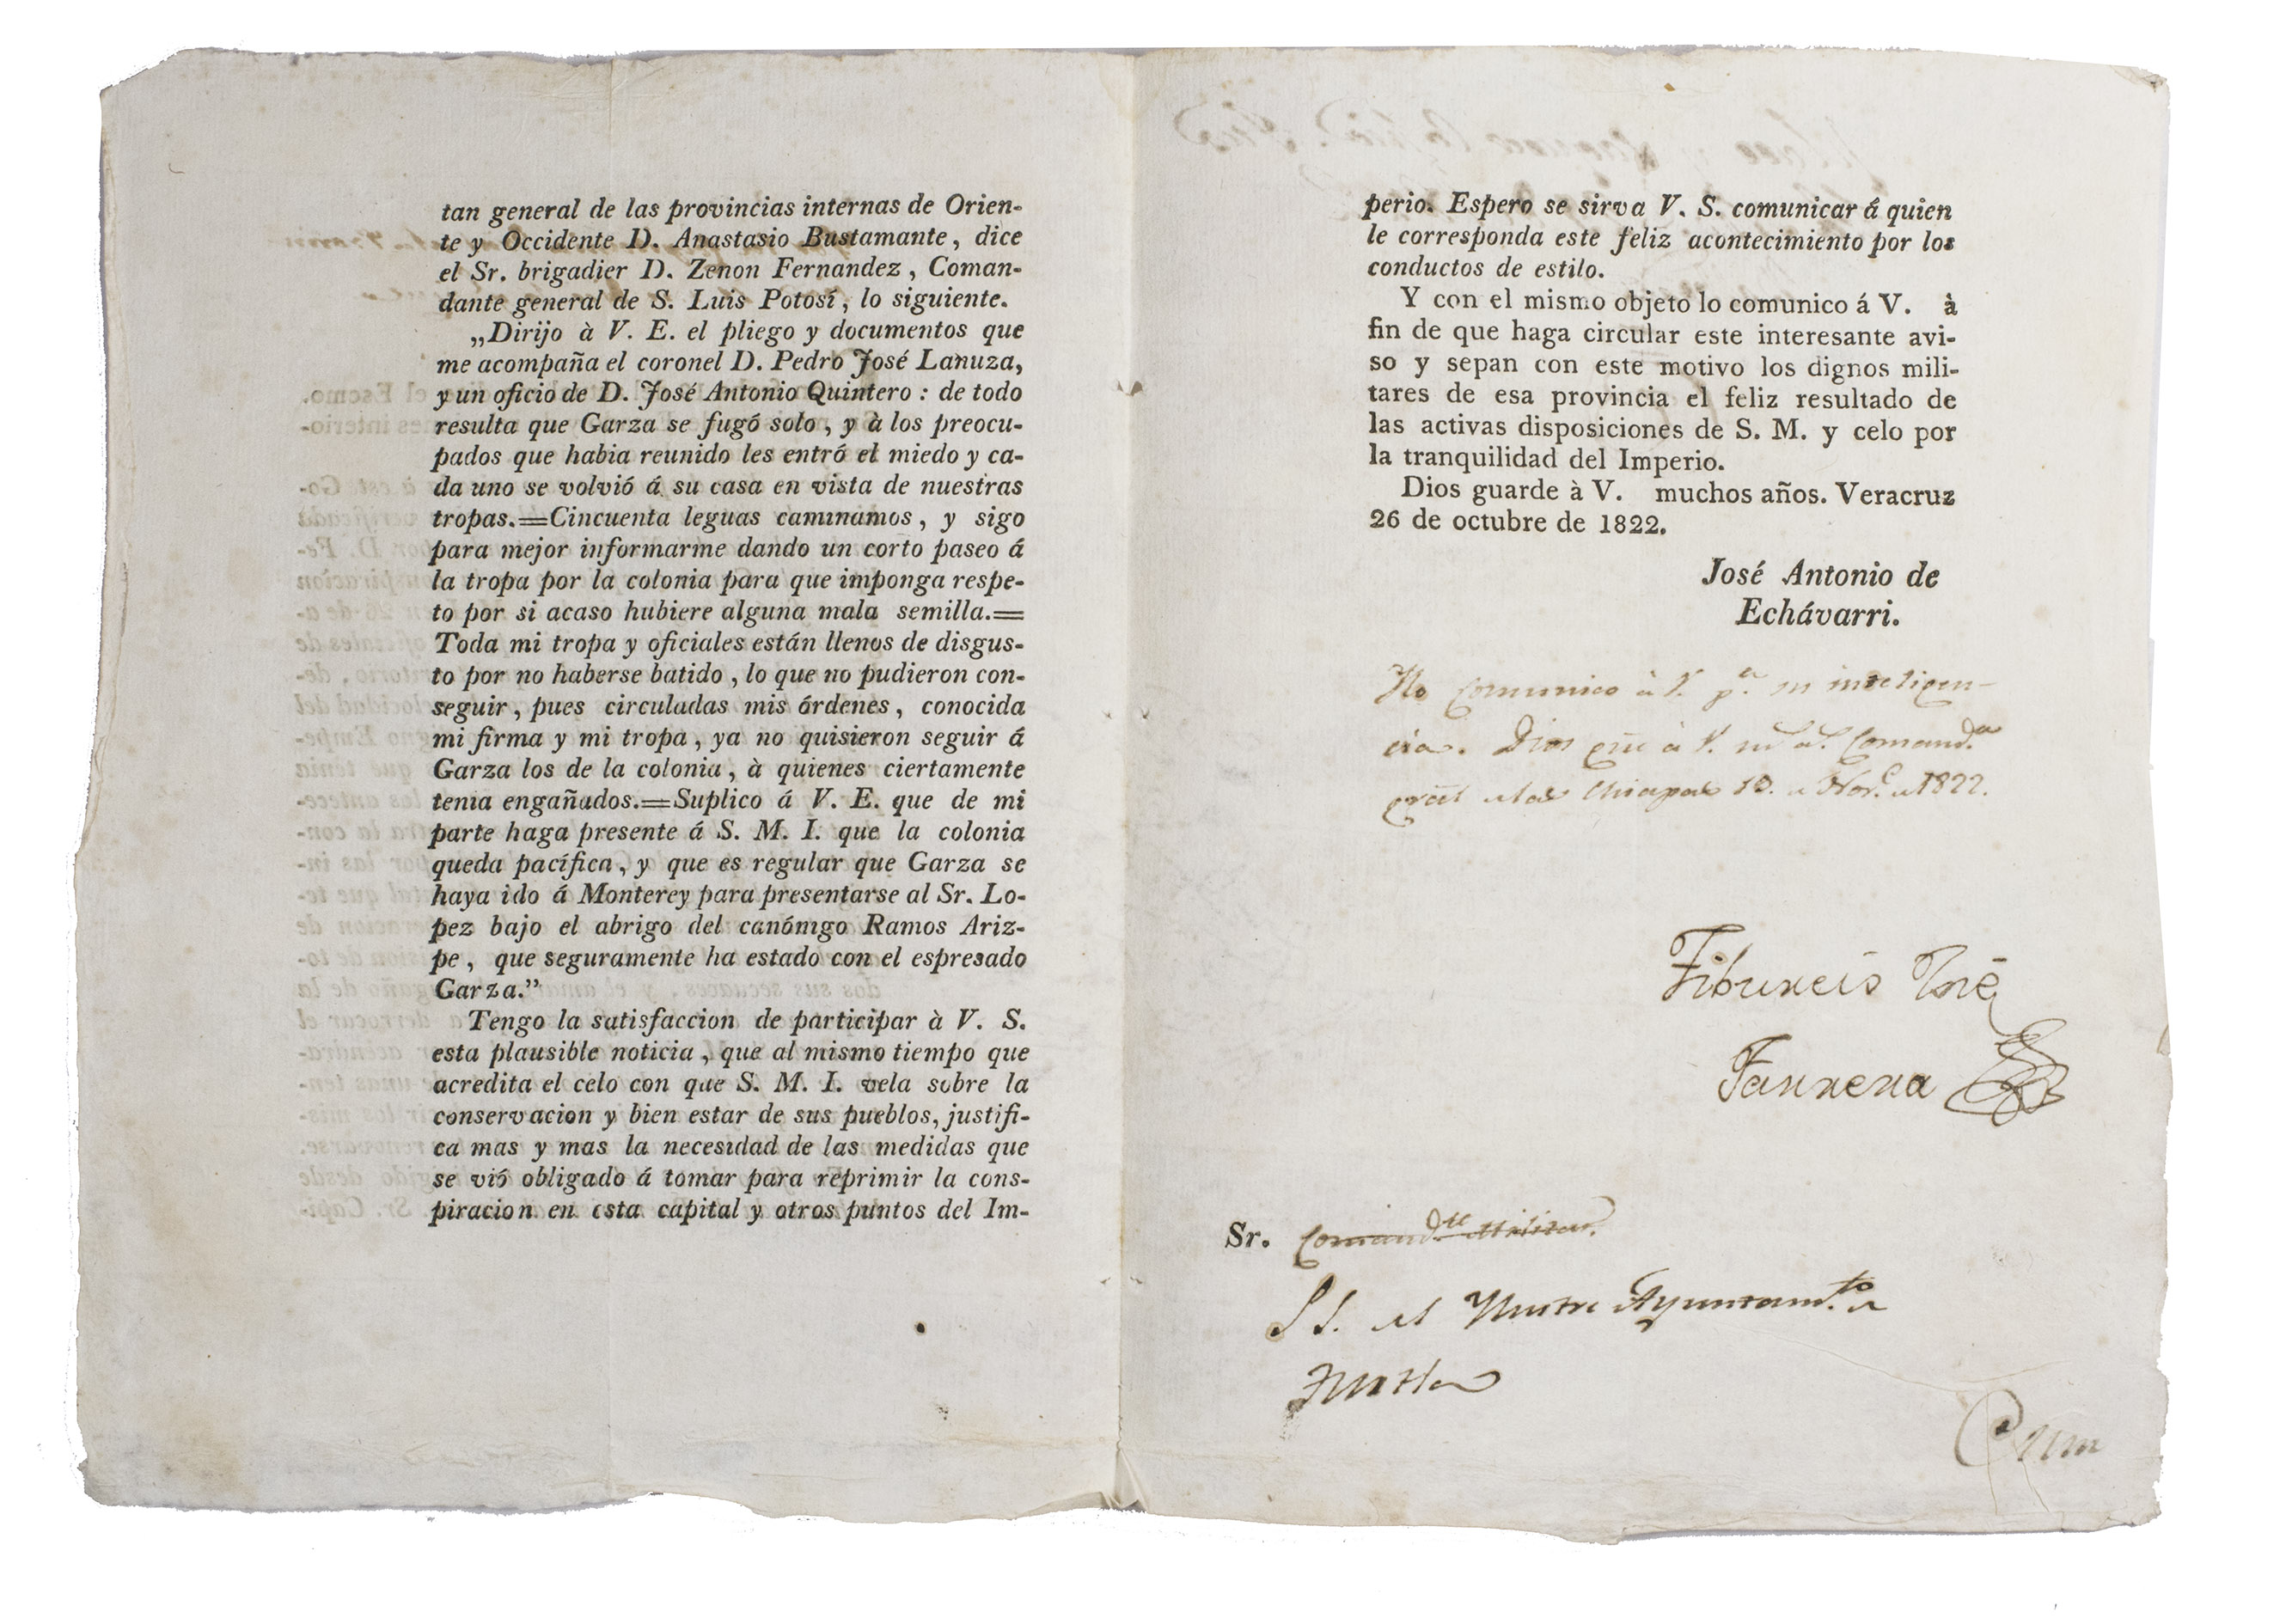 tan general de las provincias internas de Orien-
te y Occidente D. Anastasio Bustamante, dice
el Sr. brigadier D. Zenon Fernandez, Coman-
dante general de S. Luis Potosí, lo siguiente.
„Dirijo à V. E. el pliego y documentos que
me acompaña el coronel D. Pedro José Lanuza,
y un oficio de D. José Antonio Quintero: de todo
resulta que Garza se fugó solo, y à los preocu-
pados que habia reunido les entró el miedo y ca-
da uno se volvió á su casa en vista de nuestras
tropas.=Cincuenta leguas caminamos, y sigo
para mejor informarme dando un corto paseo á
la tropa por la colonia para que imponga respe-
to por si acaso hubiere alguna mala semilla.=
Toda mi tropa y oficiales están llenos de disgus-
to por no haberse batido, lo que no pudieron con-
seguir, pues circuladas mis órdenes, conocida
mi firma y mi tropa, ya no quisieron seguir á
Garza los de la colonia, à quienes ciertamente
tenia engañados.=Suplico á V. E. que de mi
parte haga presente á S. M. I. que la colonia
queda pacífica, y que es regular que Garza se
haya ido á Monterey para presentarse al Sr. Lo-
pez bajo el abrigo del canónigo Ramos Ariz-
pe, que seguramente ha estado con el espresado
Garza.”
Tengo la satisfaccion de participar à V. S.
esta plausible noticia, que al mismo tiempo que
acredita el celo con que S. M. I. vela sobre la
conservacion y bien estar de sus pueblos, justifi-
ca mas y mas la necesidad de las medidas que
se vió obligado á tomar para reprimir la cons-
piracion en esta capital y otros puntos del Im-
perio. Espero se sirva V. S. comunicar á quien
le corresponda este feliz acontecimiento por los
conductos de estilo.
Y con el mismo objeto lo comunico á V. à
fin de que haga circular este interesante avi-
so y sepan con este motivo los dignos mili-
tares de esa provincia el feliz resultado de
las activas disposiciones de S. M. y celo por
la tranquilidad del Imperio.
Dios guarde à V. muchos años. Veracruz
26 de octubre de 1822.
José Antonio de
Echávarri.
comunico à V. pa. su inteligen-
cia. Dios gue à V. ms as. Comanda
gral Chiapas 10. Nove. 1822.
Tiburcio José
Farrera
Sr. Comandte Militar.
SS. del Ilustre Ayuntamto de
Tuxtla